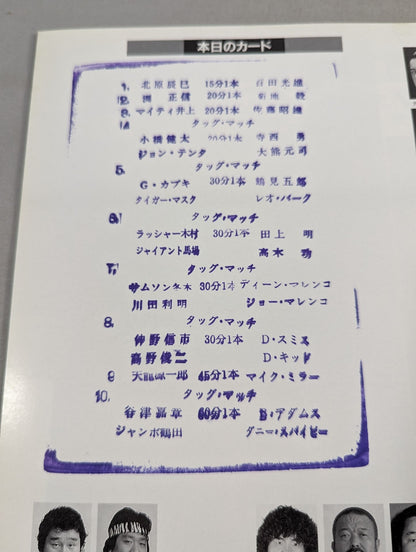 本日のカード
1. 北原辰巳 15分1本 百田光雄
2. 渕 正信 20分1本 菊地 毅
3. マイティ井上 20分1本 佐藤昭雄
4. タッグ・マッチ
小橋健太 20分1本 寺西 勇
ジョン・テンタ 大熊元司
5. タッグ・マッチ
G・カブキ 30分1本 鶴見五郎
タイガー・マスク レオ・バーク
6. タッグ・マッチ
ラッシャー木村 30分1本 田上 明
ジャイアント馬場 高木 功
7. タッグ・マッチ
サムソン冬木 30分1本 ディーン・マレンコ
川田利明 ジョー・マレンコ
8. タッグ・マッチ
仲野信市 30分1本 D・スミス
高野俊二 D・キッド
9 天龍源一郎 45分1本 マイク・ミラー
10. タッグ・マッチ
谷津嘉章 60分1本 B・アダムス
ジャンボ鶴田 ダニー・スパイビー